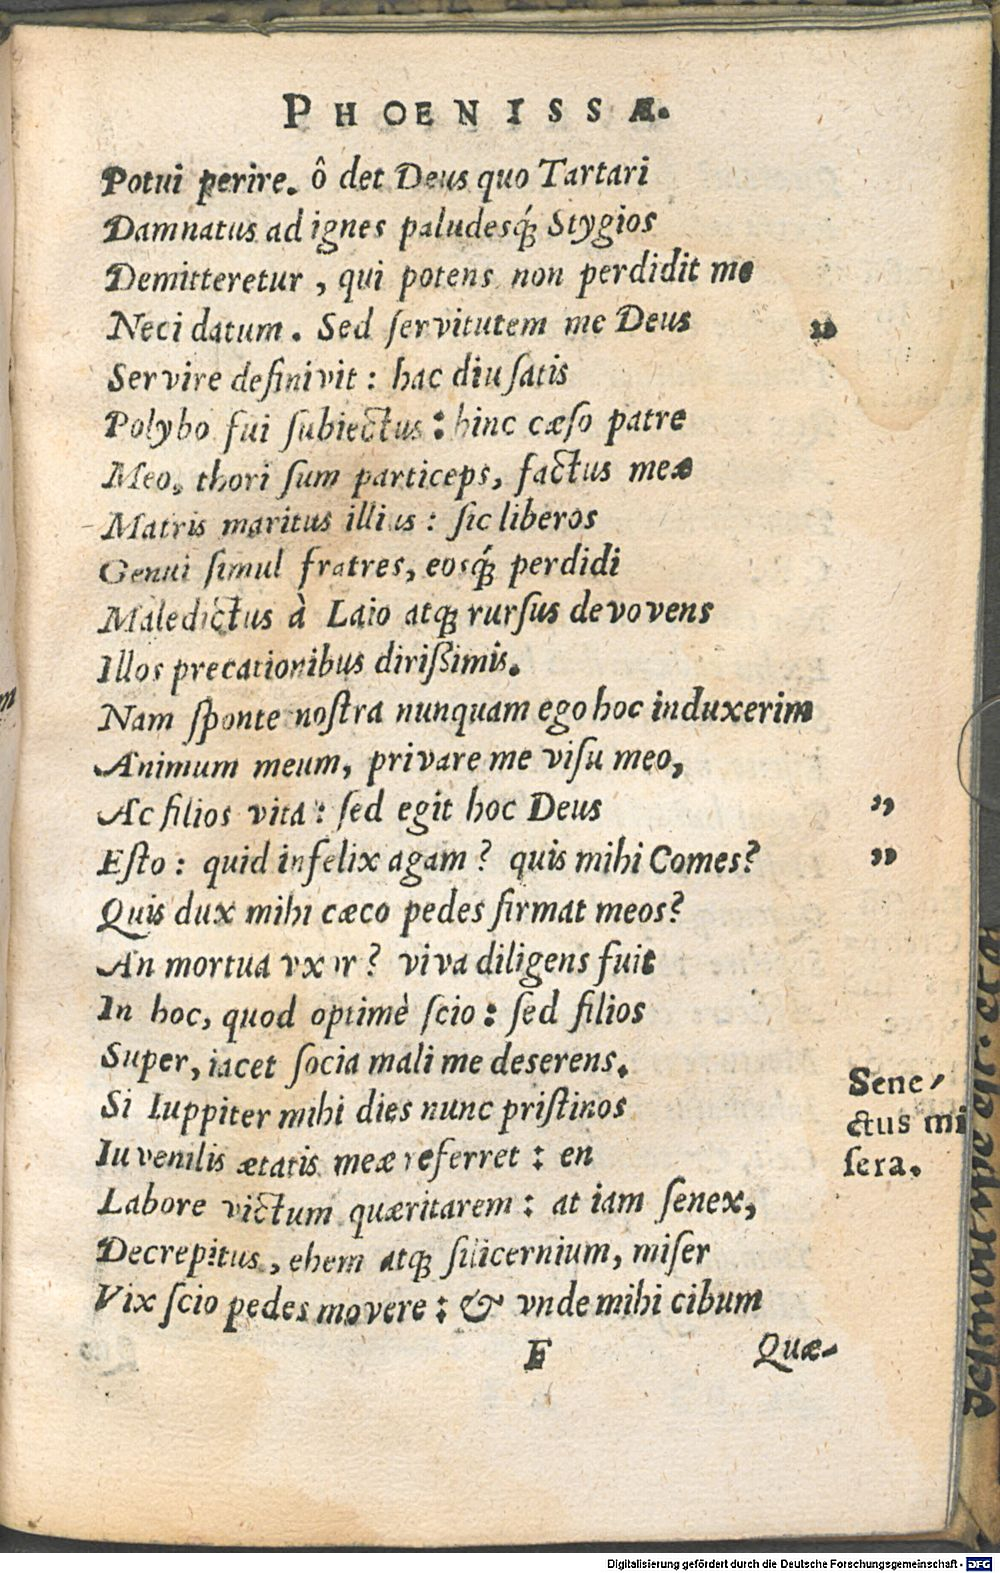 PHOENISSÆ.
Potui perire. ô det Deus quo Tartari
Damnatus ad ignes paludesq́; Stygios
Demitteretur, qui potens non perdidit me
Neci datum. Sed ſervitutem me Deus „
Servire definivit: hac diu ſatis
Polybo fui ſubiectus: hinc cæſo patre
Meo, thori ſum particeps, factus meæ
Matris maritus illius: ſic liberos
Genui ſimul fratres, eosq́; perdidi
Maledictus à Laio atq; rurſus devovens
Illos precationibus diriſsimis.
Nam ſponte noſtra nunquam ego hoc induxerim
Animum meum, privare me viſu meo,
Ac filios vita: ſed egit hoc Deus „
Eſto: quid infelix agam? quis mihi Comes? „
Quis dux mihi cæco pedes firmat meos?
An mortua vxor? viva diligens fuit
In hoc, quod optimè ſcio: ſed filios
Super, iacet ſocia mali me deserens.
Si Iuppiter mihi dies nunc priſtinos
Iuvenilis ætatis meæ referret: en
Labore victum quæritarem: at iam ſenex,
Decrepitus, ehem atq; ſilicernium, miſer
Vix ſcio pedes movere: & vnde mihi cibum
Sene-
ctus mi
ſera.
F
Quæ-
Digitalisierung gefördert durch die Deutsche Forschungsgemeinschaft - DFG